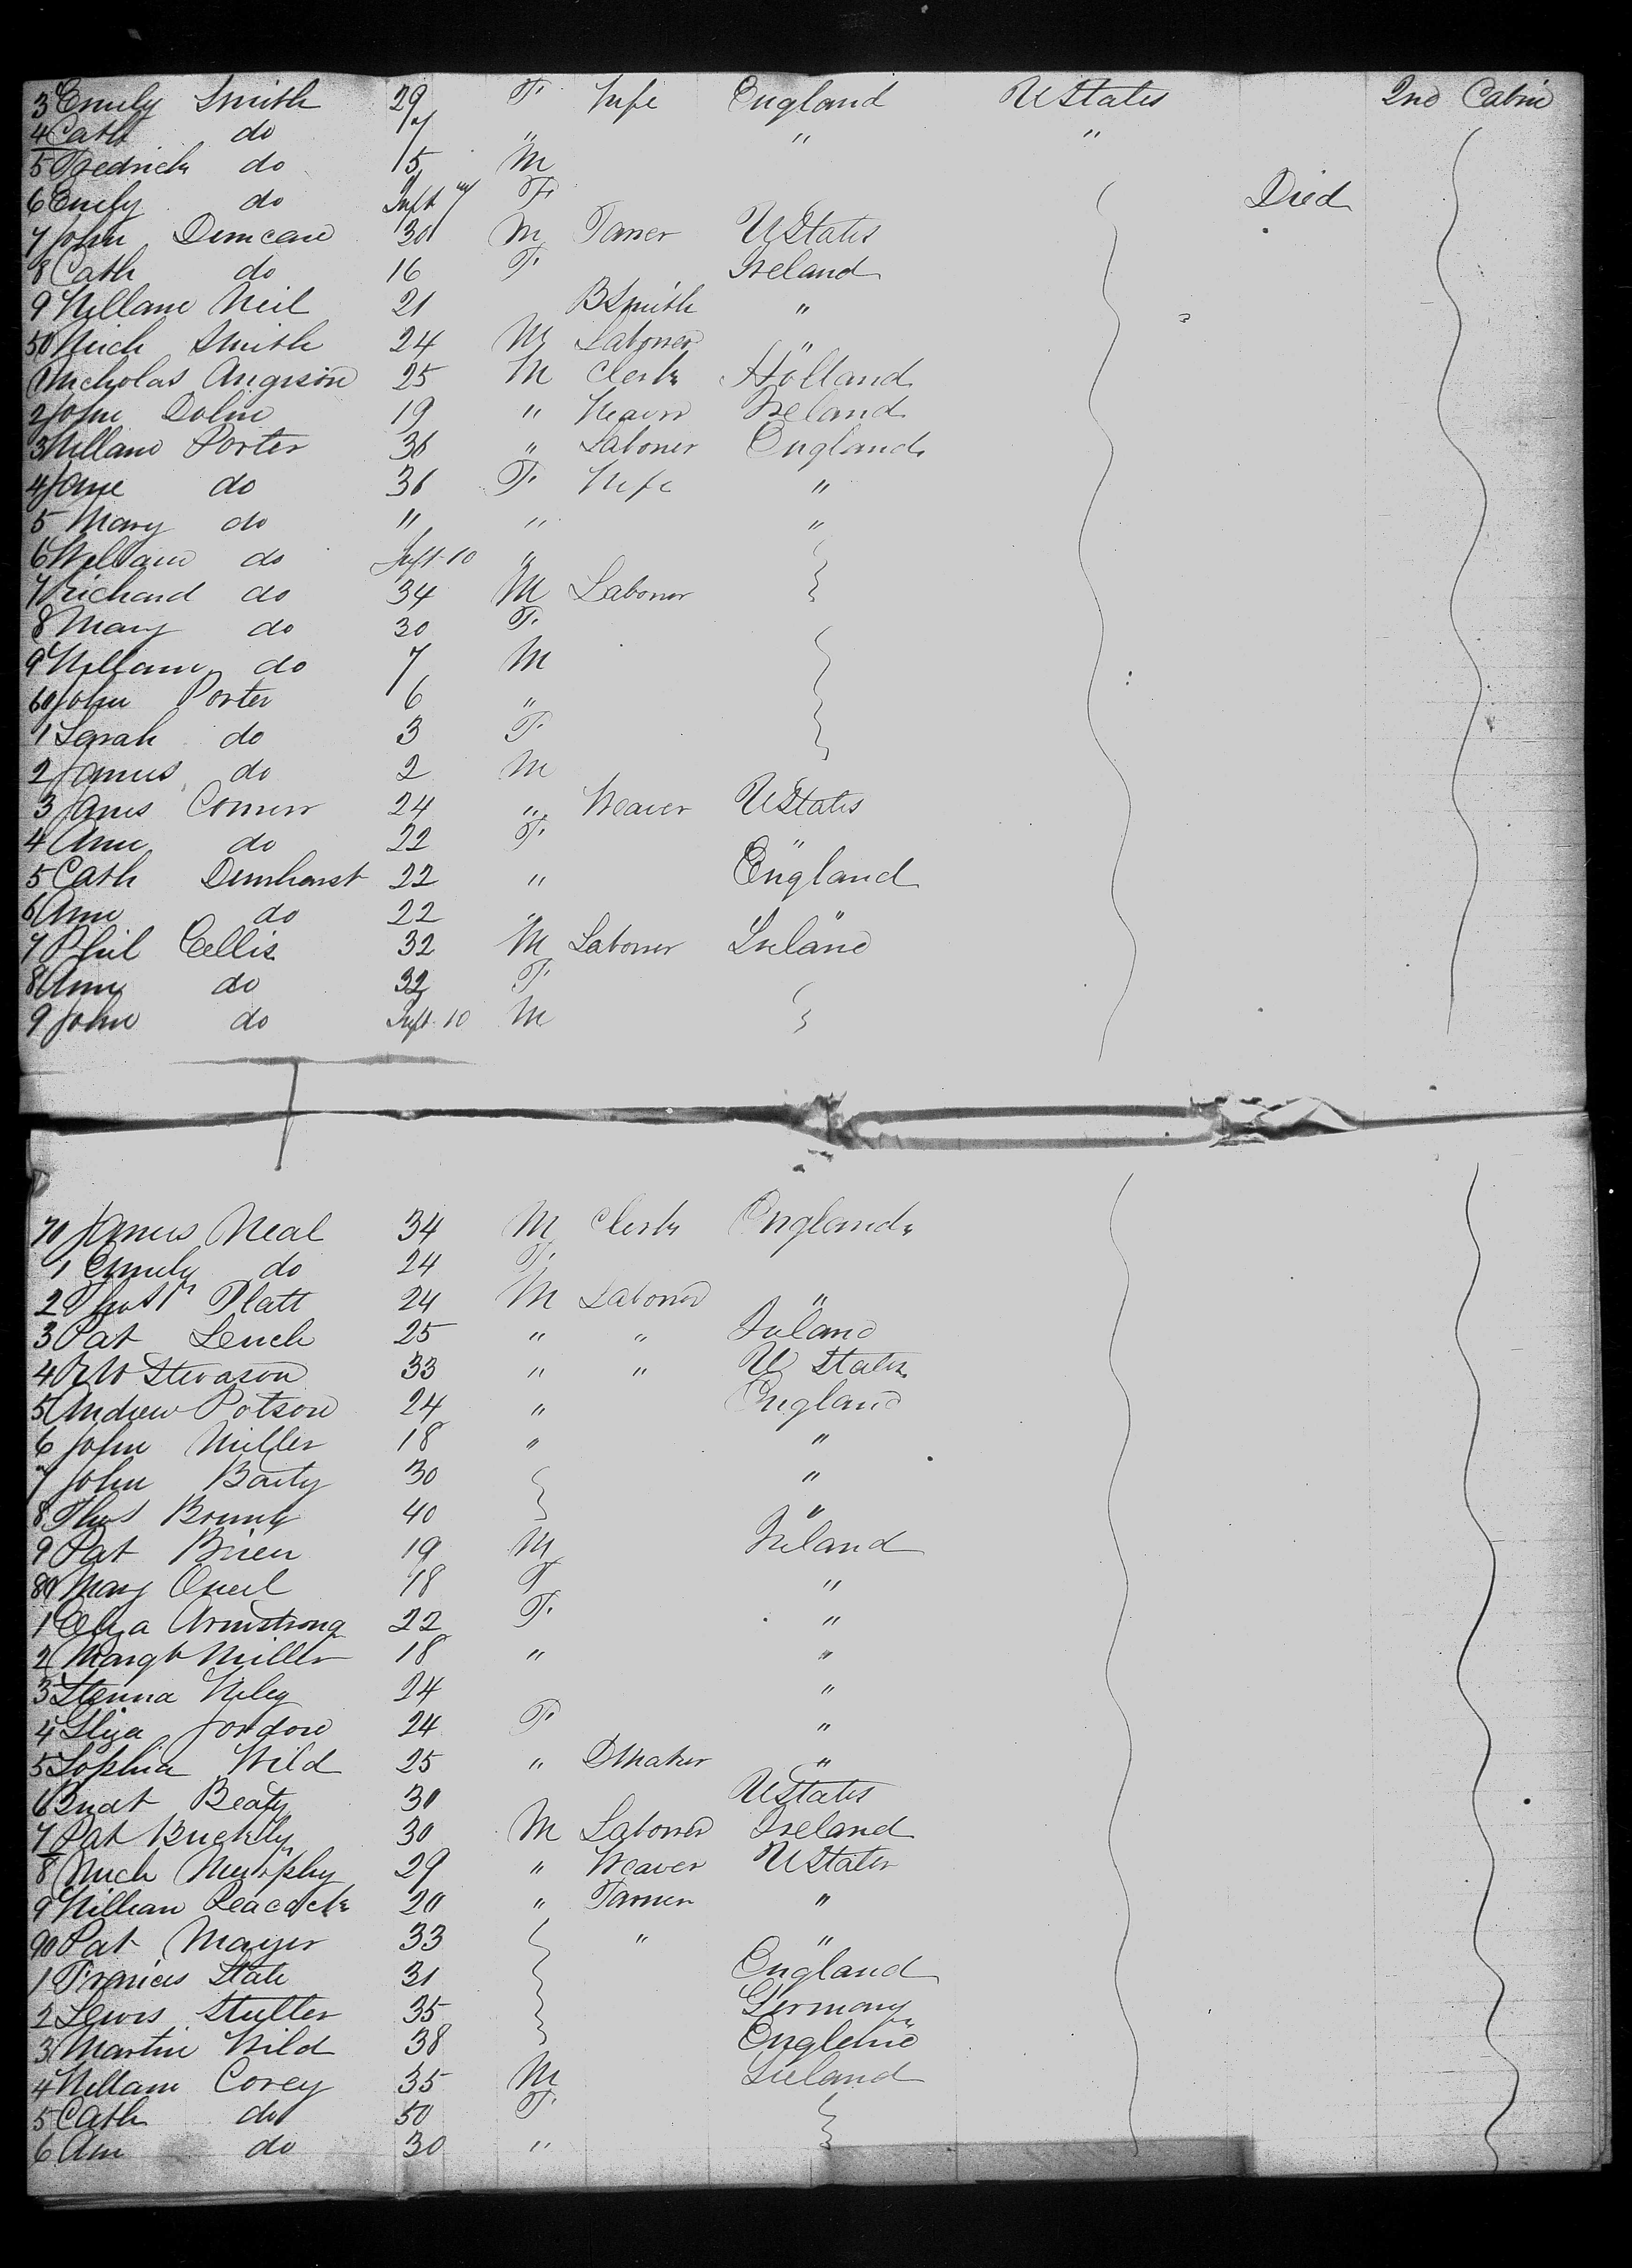 3 Emily Smith 29 F Wife England UStates 2nd Cabin
4 Cath do 7 " " "
5 Fredrick do 5 M
6 Emily do Inft F Died
7 John Duncan 30 M Farmer UStates
8 Cath do 16 F Ireland
9 William Neil 21 BSmith "
50 Mich Smith 24 M Laborer "
1 Nicholas 25 M Clerk Holland
2 John Dolin 19 " Weaver Ireland
3 William Porter 36 " Laborer England
4 Jane do 36 F Wife "
5 Mary do " " "
6 William do Inft 10 "
7 Richard do 34 M Laborer
8 Mary do 30 F
9 William do 7 M
60 John Porter 6 "
1 Sarah do 3 F
2 James do 2 M
3 James Conner 24 " Weaver UStates
4 Ann do 22 F "
5 Cath 22 " England
6 Ann do 22 " "
7 Phil Cellis 32 M Laborer Ireland
8 Ann do 32 F
9 John do Inft 10 M
70 James Neal 34 M Clerk England
1 Emily do 24 F
2 Platt 24 M Laborer "
3 Pat Leuch 25 " " Ireland
4 Stevason 33 " " U States
5 Andrew Potson 24 " England
6 John Miller 18 " "
7 John Baity 30 "
8 Thos 40 "
9 Pat Brien 19 M Ireland
80 Mary Oneil 18 F "
1 Eliza Armstrong 22 F "
2 Margt Miller 18 " "
3 24 "
4 Eliza Jordon 24 F "
5 Sophia Wild 25 " DMaker "
6 Beaty 30 UStates
7 Pat Buckly 30 M Laborer Ireland
8 Mich Murphy 29 " Weaver UStates
9 William Peacock 20 " Farmer "
90 Pat Mayer 33 " "
1 Francis State 31 England
2 Lewis Stulter 35 Germany
3 Martin Wild 38 England
4 William Corey 35 M Ireland
5 Cath do 50 F
6 Ann do 30 "